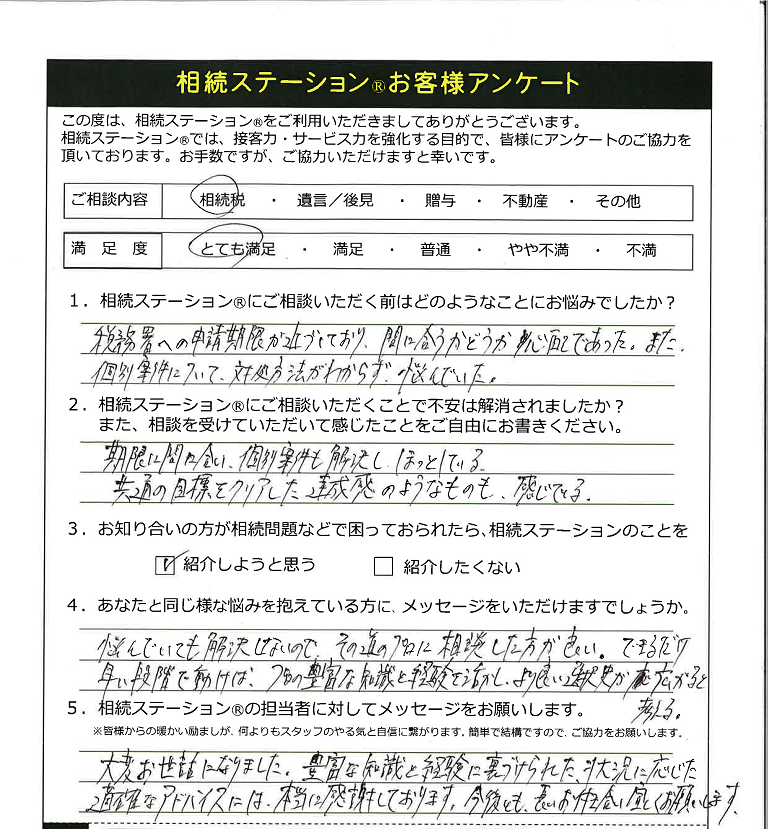 相続ステーション®お客様アンケート
この度は、相続ステーション®をご利用いただきましてありがとうございます。
相続ステーション®では、接客力・サービス力を強化する目的で、皆様にアンケートのご協力を
頂いております。お手数ですが、ご協力いただけますと幸いです。
ご相談内容 相続税 ・ 遺言／後見 ・ 贈与 ・ 不動産 ・ その他
満 足 度 とても満足 ・ 満足 ・ 普通 ・ やや不満 ・ 不満
1．相続ステーション®にご相談いただく前はどのようなことにお悩みでしたか？
税務署への申請期限が近づいており、間に合うかどうか心配であった。また、
個別案件について、対処方法がわからず、悩んでいた。
2．相続ステーション®にご相談いただくことで不安は解消されましたか？
また、相談を受けていただいて感じたことをご自由にお書きください。
期限に間に合い、個別案件も解決し、ほっとしている。
共通の目標をクリアした達成感のようなものも、感じている。
3．お知り合いの方が相続問題などで困っておられたら、相続ステーションのことを
紹介しようと思う 紹介したくない
4．あなたと同じ様な悩みを抱えている方に、メッセージをいただけますでしょうか。
悩んでいても解決しないので、その道のプロに相談した方が良い。できるだけ
早い段階で動けば、プロの豊富な知識と経験を活かし、より良い選択史が広がると
考える。
5．相続ステーション®の担当者に対してメッセージをお願いします。
※皆様からの暖かい励ましが、何よりもスタッフのやる気と自信に繋がります。簡単で結構ですので、ご協力をお願いします。
大変お世話になりました。豊富な知識と経験に裏づけられた、状況に応じた
適確なアドバイスには、本当に感謝しております。今後とも、長いお付合い宜しくお願いします、